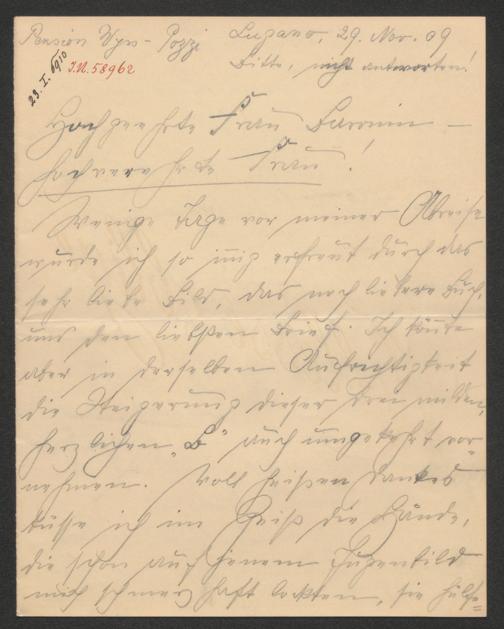 Pension Wyss-Pozzi Lugano, 29. Nov. 09
Bitte, nicht antworten!
23. I. 1910
I.N. 58962
Hochgeehrte Frau Baronin –
hochverehrte Frau!
Wenige Tage vor meiner Abreise
wurde ich so innig erfreut durch das
sehr liebe Bild, das noch liebere Buch,
und den liebsten Brief. Ich könnte
aber in derselben Aufrichtigkeit
die Steigerung dieser drei milden,
herzlichen „B“ auch umgekehrt vor-
nehmen. Voll heißen Dankes
küsse ich im Geist die Hände,
die schon auf jenem Jugendbild
mich schmerzhaft lockten, sie